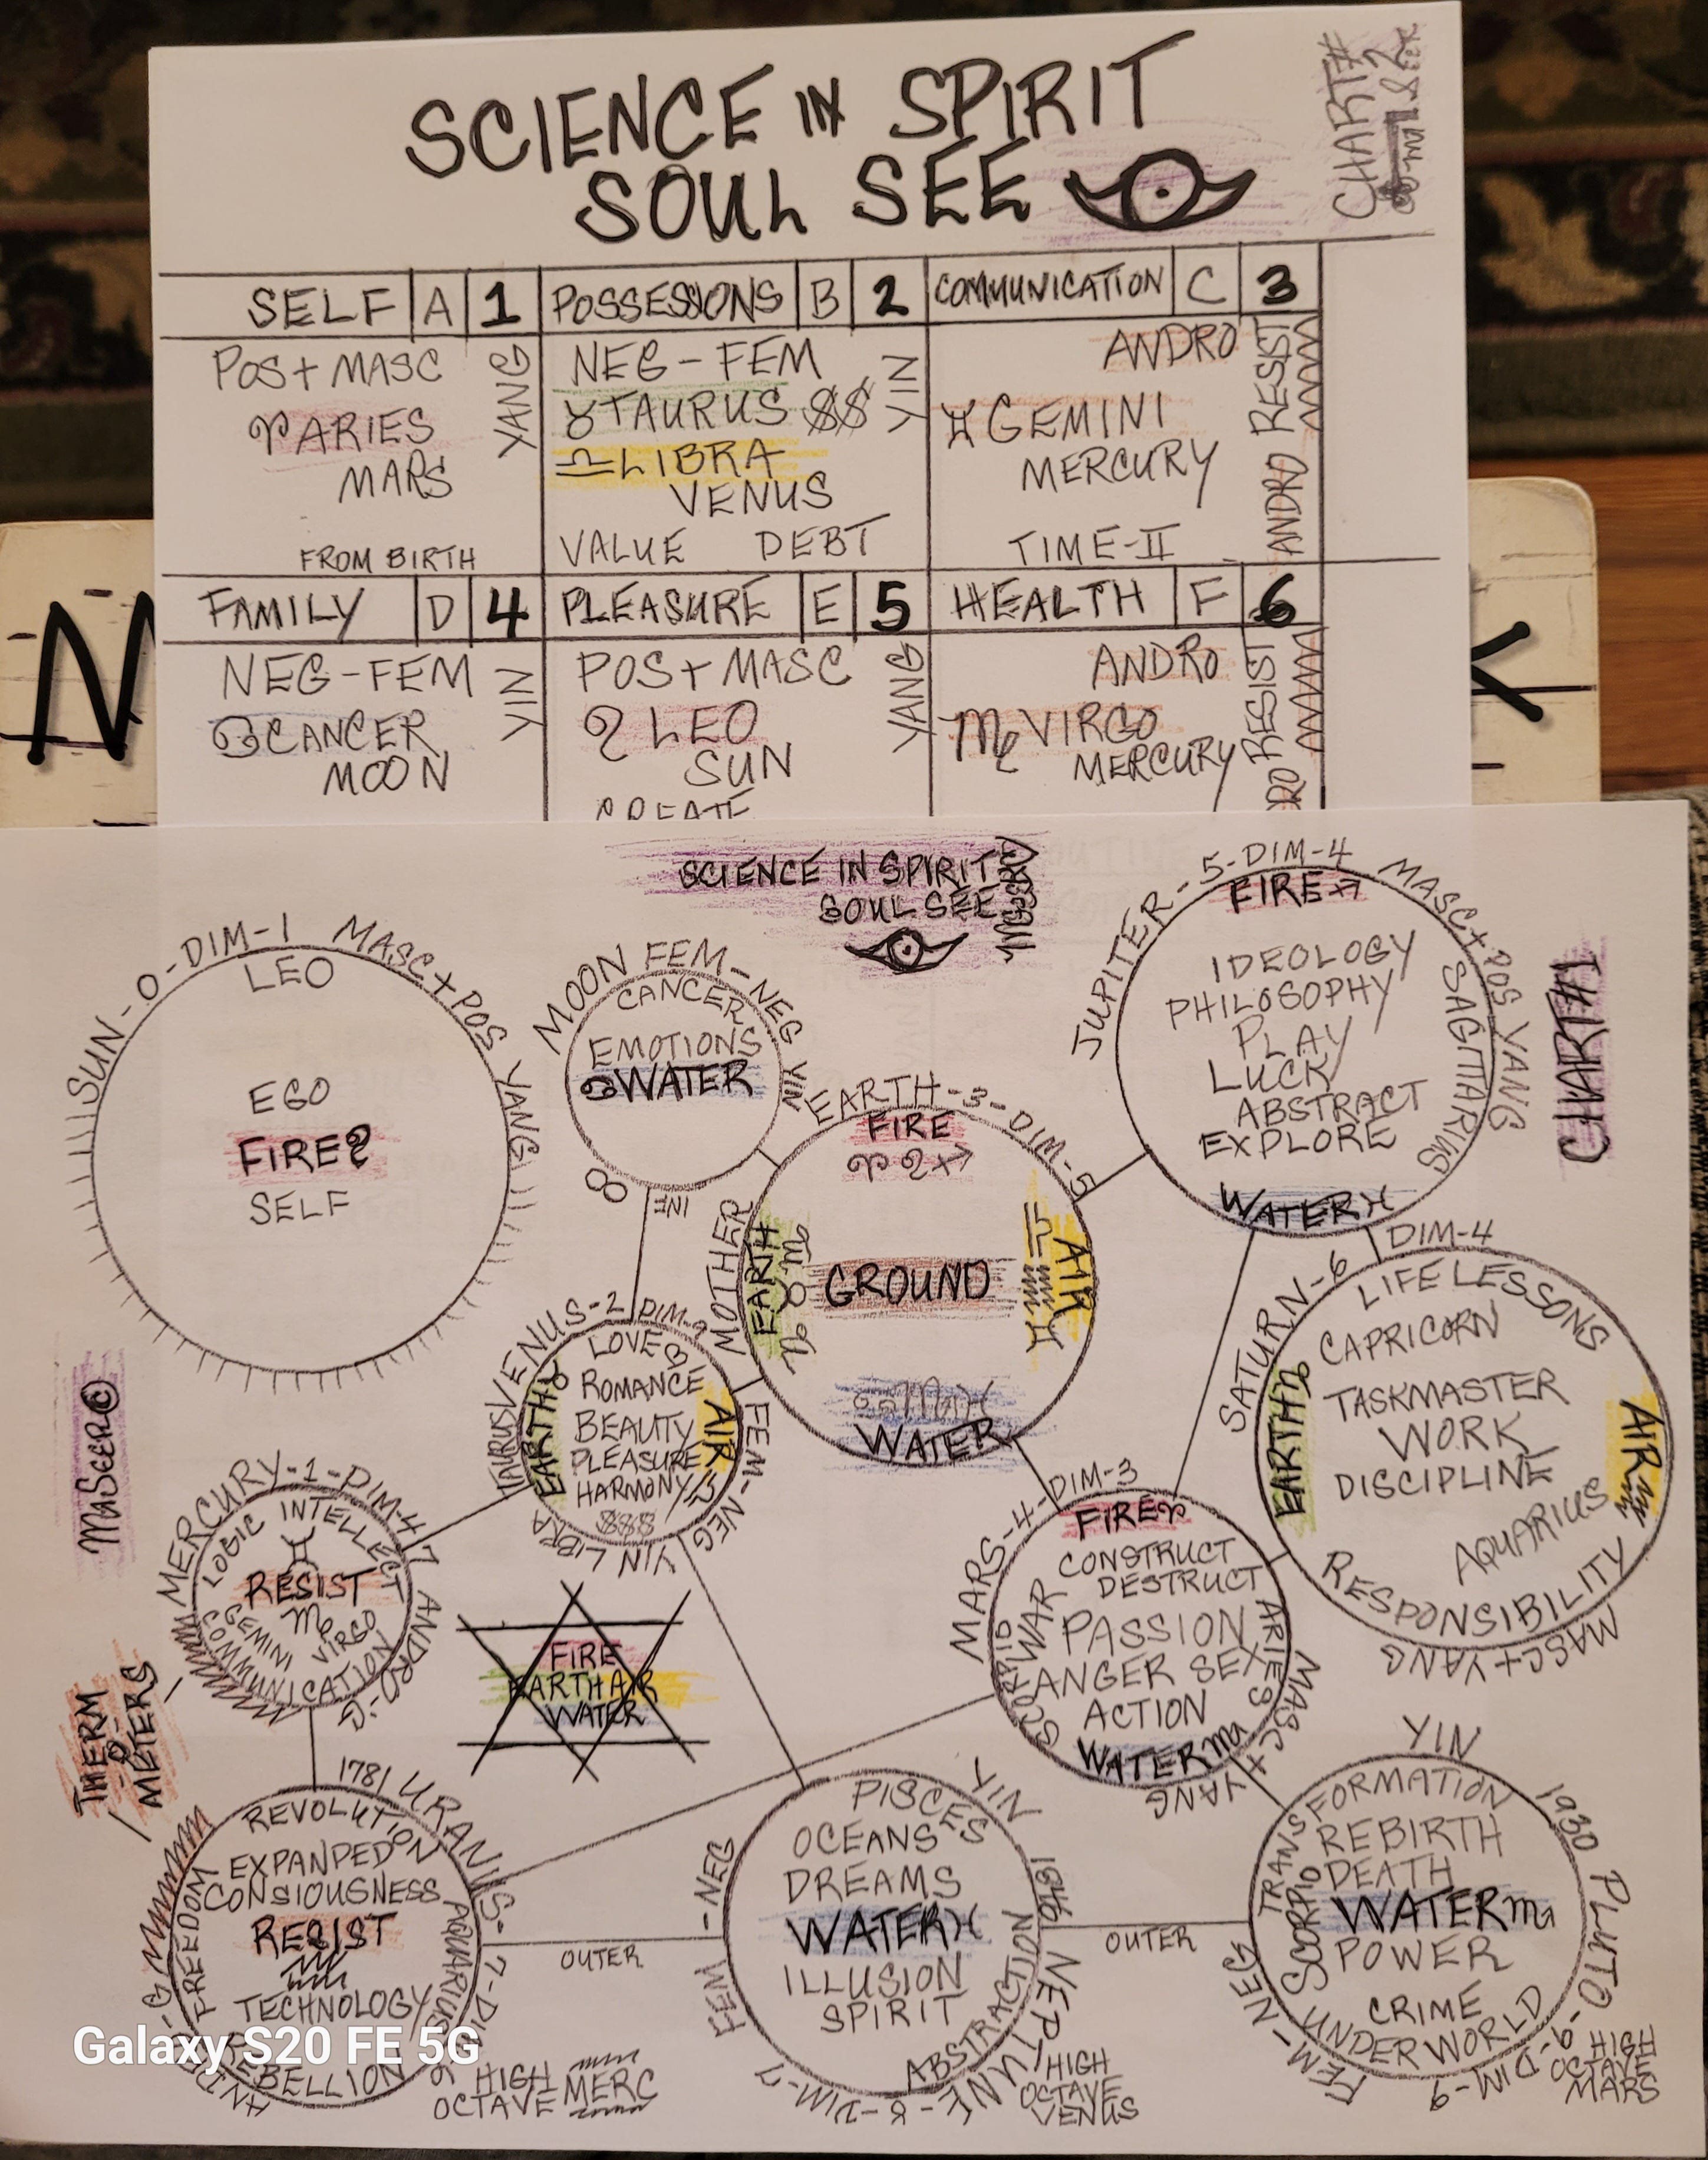 SCIENCE IN SPIRIT
SOUL SEE
CHART#
SELF A 1
POS+ MASC
YANG
♈ARIES
MARS
FROM BIRTH
POSSESSIONS B 2
NEG-FEM
YIN
♉TAURUS $$
♎LIBRA
VENUS
VALUE DEBT
COMMUNICATION C 3
ANDRO
♊GEMINI
MERCURY
TIME-II
ANDRO RESIST
FAMILY D 4
NEG-FEM
YIN
♋CANCER
MOON
PLEASURE E 5
POS+ MASC
YANG
♌ LEO
SUN
CREATE
HEALTH F 6
ANDRO
♍ VIRGO
MERCURY
RESIST
SCIENCE IN SPIRIT
SOUL SEE
MaSeeR
CHART#1
SUN-0-DIM-1 MASC+POS YANG
LEO
EGO
FIRE♌
SELF
MOON FEM-NEG YIN
CANCER
EMOTIONS
♋WATER
8
INF
EARTH-3-DIM-5
FIRE
♈♌♐
MOTHER
EARTH
♑♉♍
GROUND
♎♒♊
AIR
♋♏♓
WATER
JUPITER-5-DIM-4 MASC+POS YANG
FIRE♐
IDEOLOGY
PHILOSOPHY
PLAY
LUCK
ABSTRACT
EXPLORE
SAGITTARIUS
WATER♓
SATURN-6 DIM-4
LIFE LESSONS
CAPRICORN
TASKMASTER
WORK
DISCIPLINE
AQUARIUS
RESPONSIBILITY
EARTH♑
AIR♒
MASC+YANG
VENUS-2 DIM-2
LOVE
ROMANCE
BEAUTY
PLEASURE
HARMONY
$$$
TAURUS
EARTH♉
AIR♎
FEM-NEG
YIN LIBRA
MaSeeR©
MERCURY-1-DIM-7 ANDRO-G
LOGIC INTELLECT
♊
RESIST
♍
GEMINI VIRGO
COMMUNICATION
THERM
O
METERS
FIRE
EARTH AIR
WATER
MARS-4-DIM-3
FIRE♈
CONSTRUCT
DESTRUCT
WAR
PASSION
ANGER SEX
ACTION
SCORPIO
ARIES
WATER♏
MASC+
YANG
1781 URANUS-7-DIM-6
REVOLUTION
EXPANDED
CONSIOUSNESS
RESIST
TECHNOLOGY
FREEDOM
AQUARIUS
REBELLION
ANDRO-G
HIGH
OCTAVE MERC
OUTER
PISCES
OCEANS
DREAMS
WATER♓
ILLUSION
SPIRIT
ABSTRACTION
YIN
FEM-NEG
1846 NEPTUNE-8-DIM-7
HIGH
OCTAVE
VENUS
OUTER
YIN
TRANSFORMATION
REBIRTH
DEATH
WATER♏
POWER
CRIME
UNDERWORLD
SCORPIO
1930 PLUTO-9-DIM-9
FEM-NEG
HIGH
OCTAVE
MARS
Galaxy S20 FE 5G